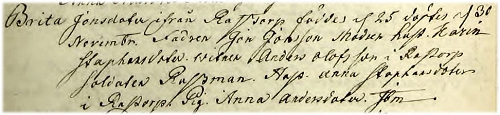 Brita Jönsdoter ifrån Rastorp föddes d 25 döptes d 30
Novembr. Fadren Jön Jönsson Modren hust. Karin
Staphansdoter. witnen Anders Olofsson i Rastorp
Soldaten Rassman. Hust. Anna Staphansdoter
i Rastorph Pig. Anna Andersdoter.